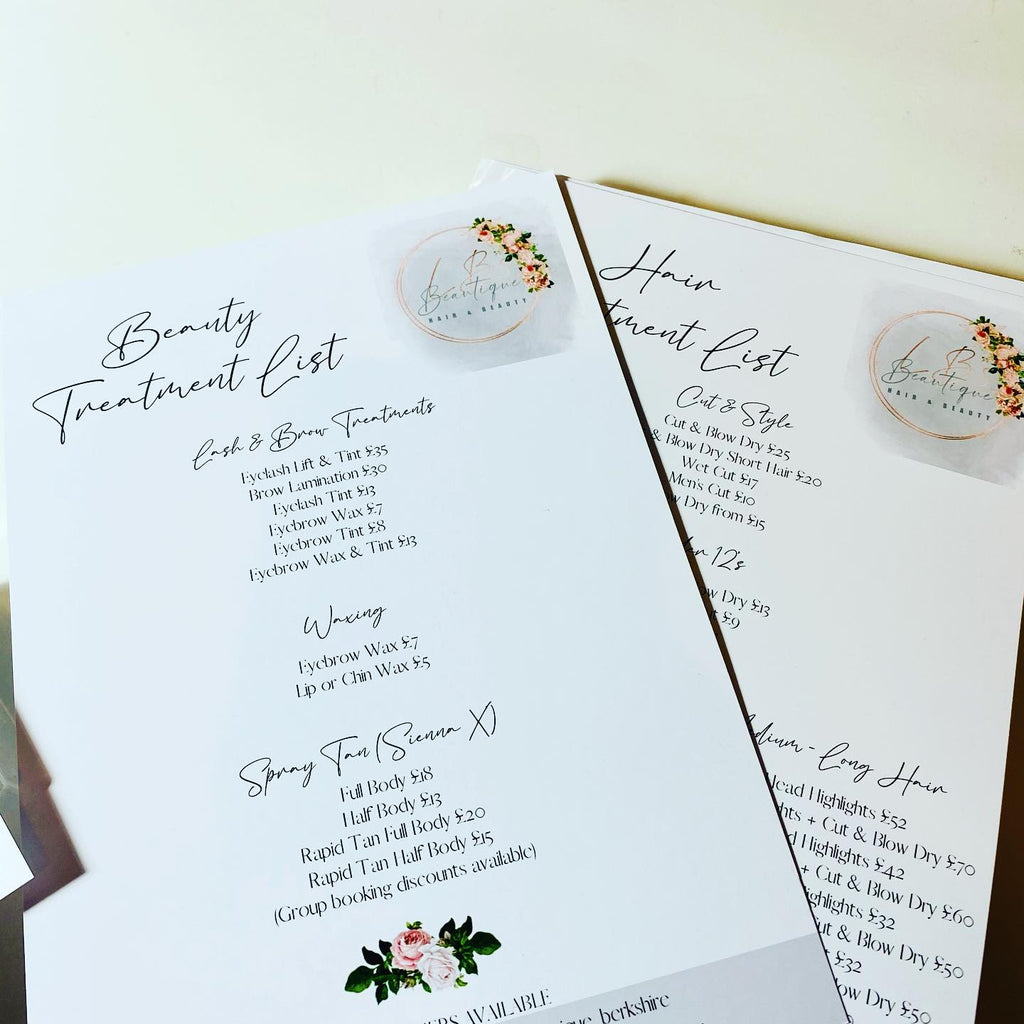 Beauty
Treatment List
L B's
Beautique
HAIR & BEAUTY
Lash & Brow Treatments
Eyelash Lift & Tint £35
Brow Lamination £30
Eyelash Tint £13
Eyebrow Wax £7
Eyebrow Tint £8
Eyebrow Wax & Tint £13
Waxing
Eyebrow Wax £7
Lip or Chin Wax £5
Spray Tan (Sienna X)
Full Body £18
Half Body £13
Rapid Tan Full Body £20
Rapid Tan Half Body £15
(Group booking discounts available)
AVAILABLE
berkshire
Hair
List
L B's
Beautique
HAIR & BEAUTY
Cut & Style
Cut & Blow Dry £25
& Blow Dry Short Hair £20
Wet Cut £17
Men's Cut £10
Dry from £15
12's
Dry £13
£9
Long Hair
Head Highlights £52
+ Cut & Blow Dry £70
Highlights £42
+ Cut & Blow Dry £60
£32
& Blow Dry £50
£32
Dry £50